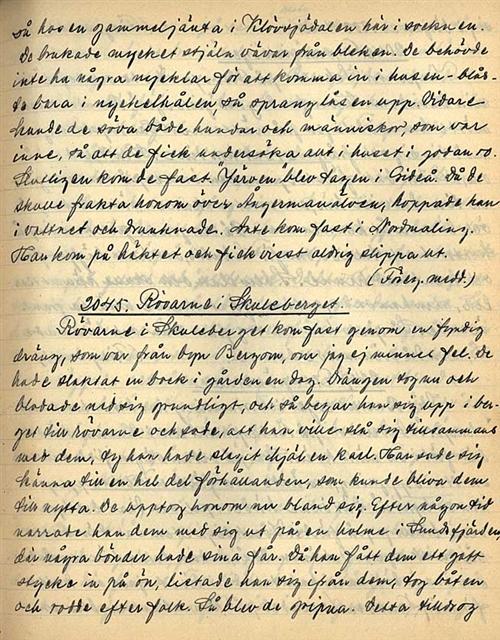 så hos en gammeljänta i Klövsjödalen här i socknen.
De brukade mycket stjäla vävar från bleken. De behövde
inte ha några nycklar för att komma in i husen - blås-
te bara i nyckelhålen, så sprang låsen upp. Vidare
kunde de söva både hundar och människor, som var
inne, så att de fick undersöka allt i huset i godan ro.
Slutligen kom de fast. Järven blev tagen i Gideå. Då de
skulle frakta honom över Ångermanälven, hoppade han
i vattnet och drunknade. Ante kom fast i Nordmaling.
Han kom på häktet och fick visst aldrig slippa ut.
(Föreg. medd.)
2045. Rövarne i Skuleberget.
Rövarne i Skuleberget kom fast genom en fyndig
dräng, som var från byn Bergom, om jag ej minnes fel. De
hade slaktat en bock i gården en dag. Drängen tog nu och
blodade ned sig grundligt, och så begav han sig upp i ber-
get till rövarne och sade, att han ville slå sig tillsammans
med dem, ty han hade slagit ihjäl en karl. Han sade sig
känna till en hel del förhållanden, som kunde bliva dem
till nytta. De upptog honom nu bland sig. Efter någon tid
narrade han dem med sig ut på en holme i
där några bönder hade sina får. Då han fått dem ett gott
stycke in på ön, listade han sig ifrån dem, tog båten
och rodde efter folk. Så blev de gripna. Detta tilldrog